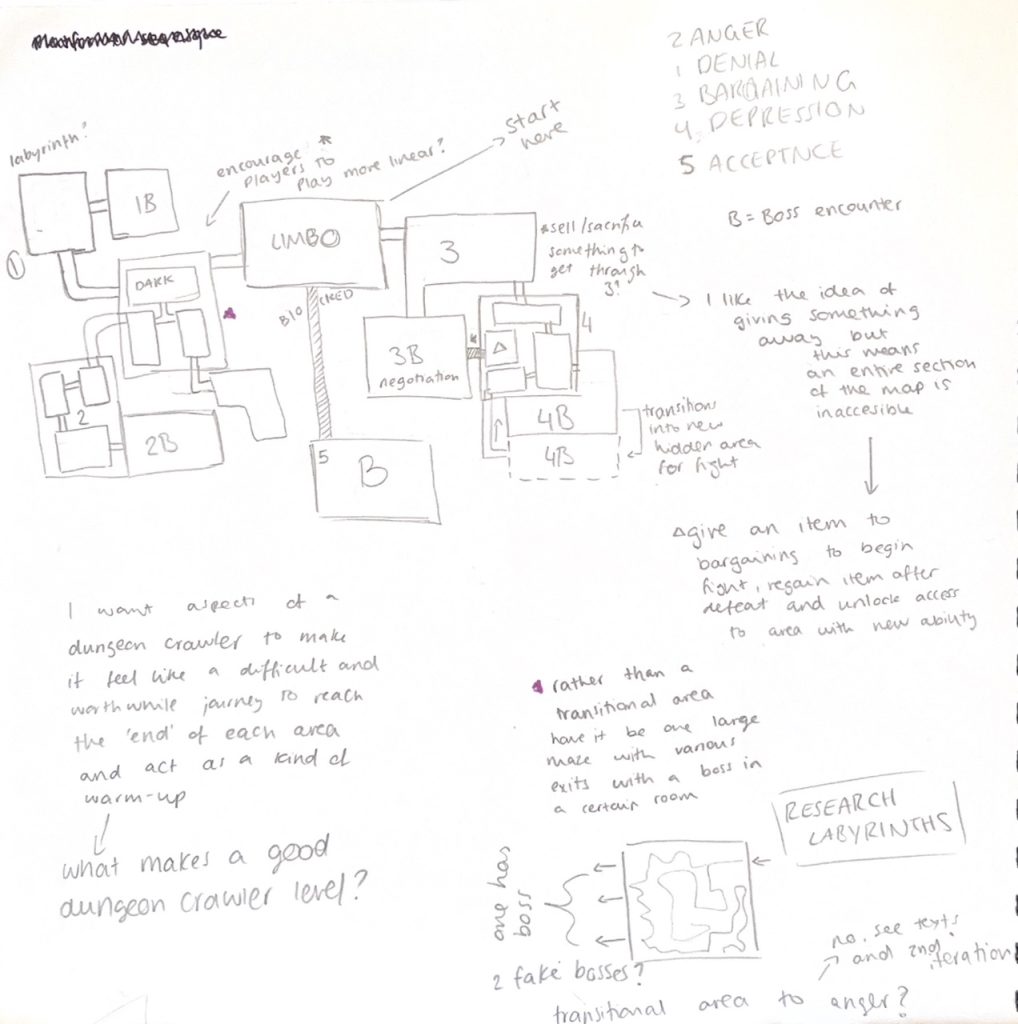 2 ANGER
1 DENIAL
3 BARGAINING
4. DEPRESSION
5 ACCEPTNCE
B = Boss encounter
labyrinth?
encourage
players to
play more linear?
start
here
1B
1
LIMBO
DARK
BLOCKED
3
*sell/sacrifice
something to
get through
3?
3B
negotiation
4
Δ
4B
4B
transitions
into new
hidden area
for fight
2
2B
5
B
I like the idea of
giving something
away but
this means
an entire section
of the map is
inaccesible
Δ give an item to
bargaining to begin
fight, regain item after
defeat and unlock access
to area with new ability
I want aspects of a
dungeon crawler to make
it feel like a difficult and
worthwhile journey to reach
the 'end' of each area
and act as a kind of
warm-up
what makes a good
dungeon crawler level?
rather than a
transitional area
have it be one large
maze with various
exits with a boss in
a certain room
RESEARCH
LABYRINTHS
one has
boss
2 fake bosses?
transitional area to anger?
no. see texts
and 2nd iteration